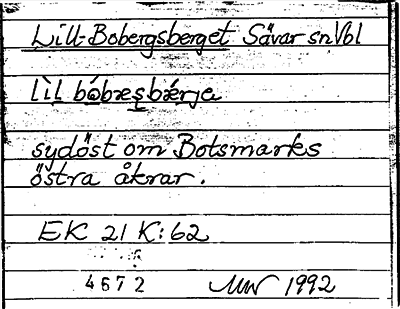 Lill-Bobergsberget Sävar sn Vbl
lìl bóbræs̜bǽrja
sydöst om Botsmarks
östra åkrar.
EK 21 K:62
4672 MW 1992